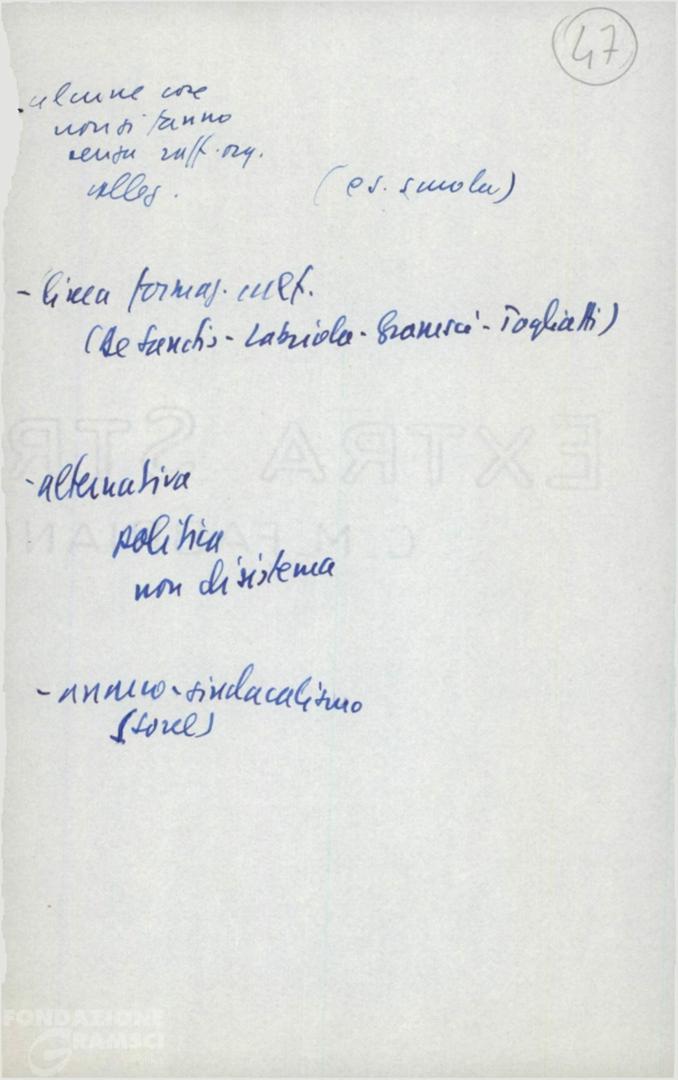 47
alcune cose
non si fanno
senza raff. org.
colleg.
(es. scuola)
- linea formaz. cult.
(De Sanctis - Labriola - Gramsci - Togliatti)
EXTRA STR
C.M. FABRIANO
- alternativa
politica
non di sistema
- anarco-sindacalismo
(Sorel)
FONDAZIONE
GRAMSCI